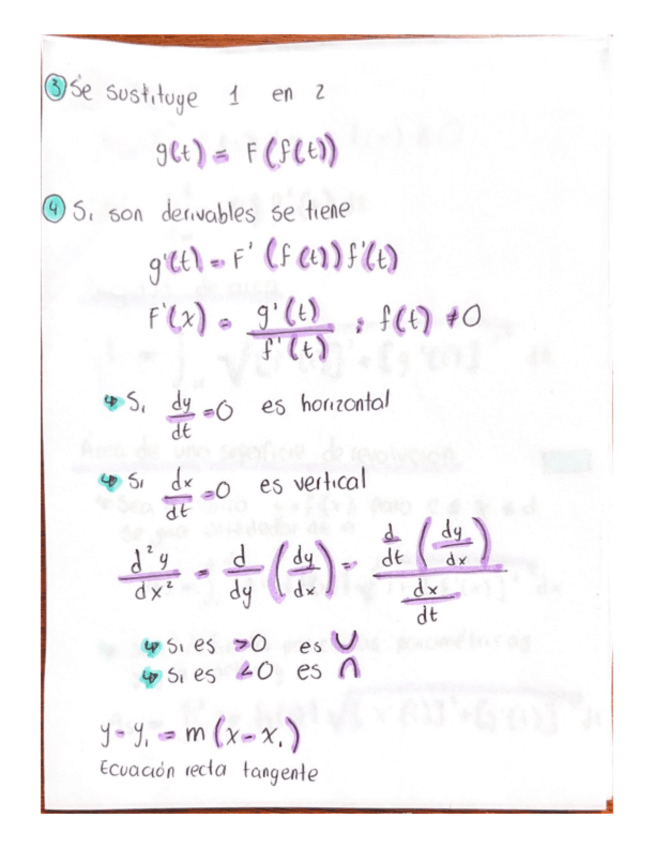 ③ Se sustituye 1 en 2
g(t) = F(f(t))
④ Si son derivables se tiene
g'(t) = F'(f(t))f'(t)
F'(x) = g'(t)/f'(t) ; f(t) ≠ 0
↳ Si dy/dt = 0 es horizontal
↳ Si dx/dt = 0 es vertical
d²y/dx² = d/dy (dy/dx) = d/dt (dy/dx) / dx/dt
↳ Si es >0 es ∪
↳ Si es <0 es ∩
y - y₁ = m(x - x₁)
Ecuación recta tangente